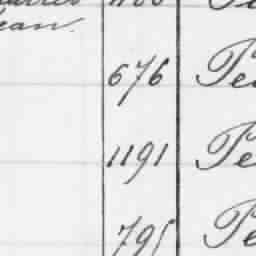 ean.
676 Pe
1191 Pe
795 Pe